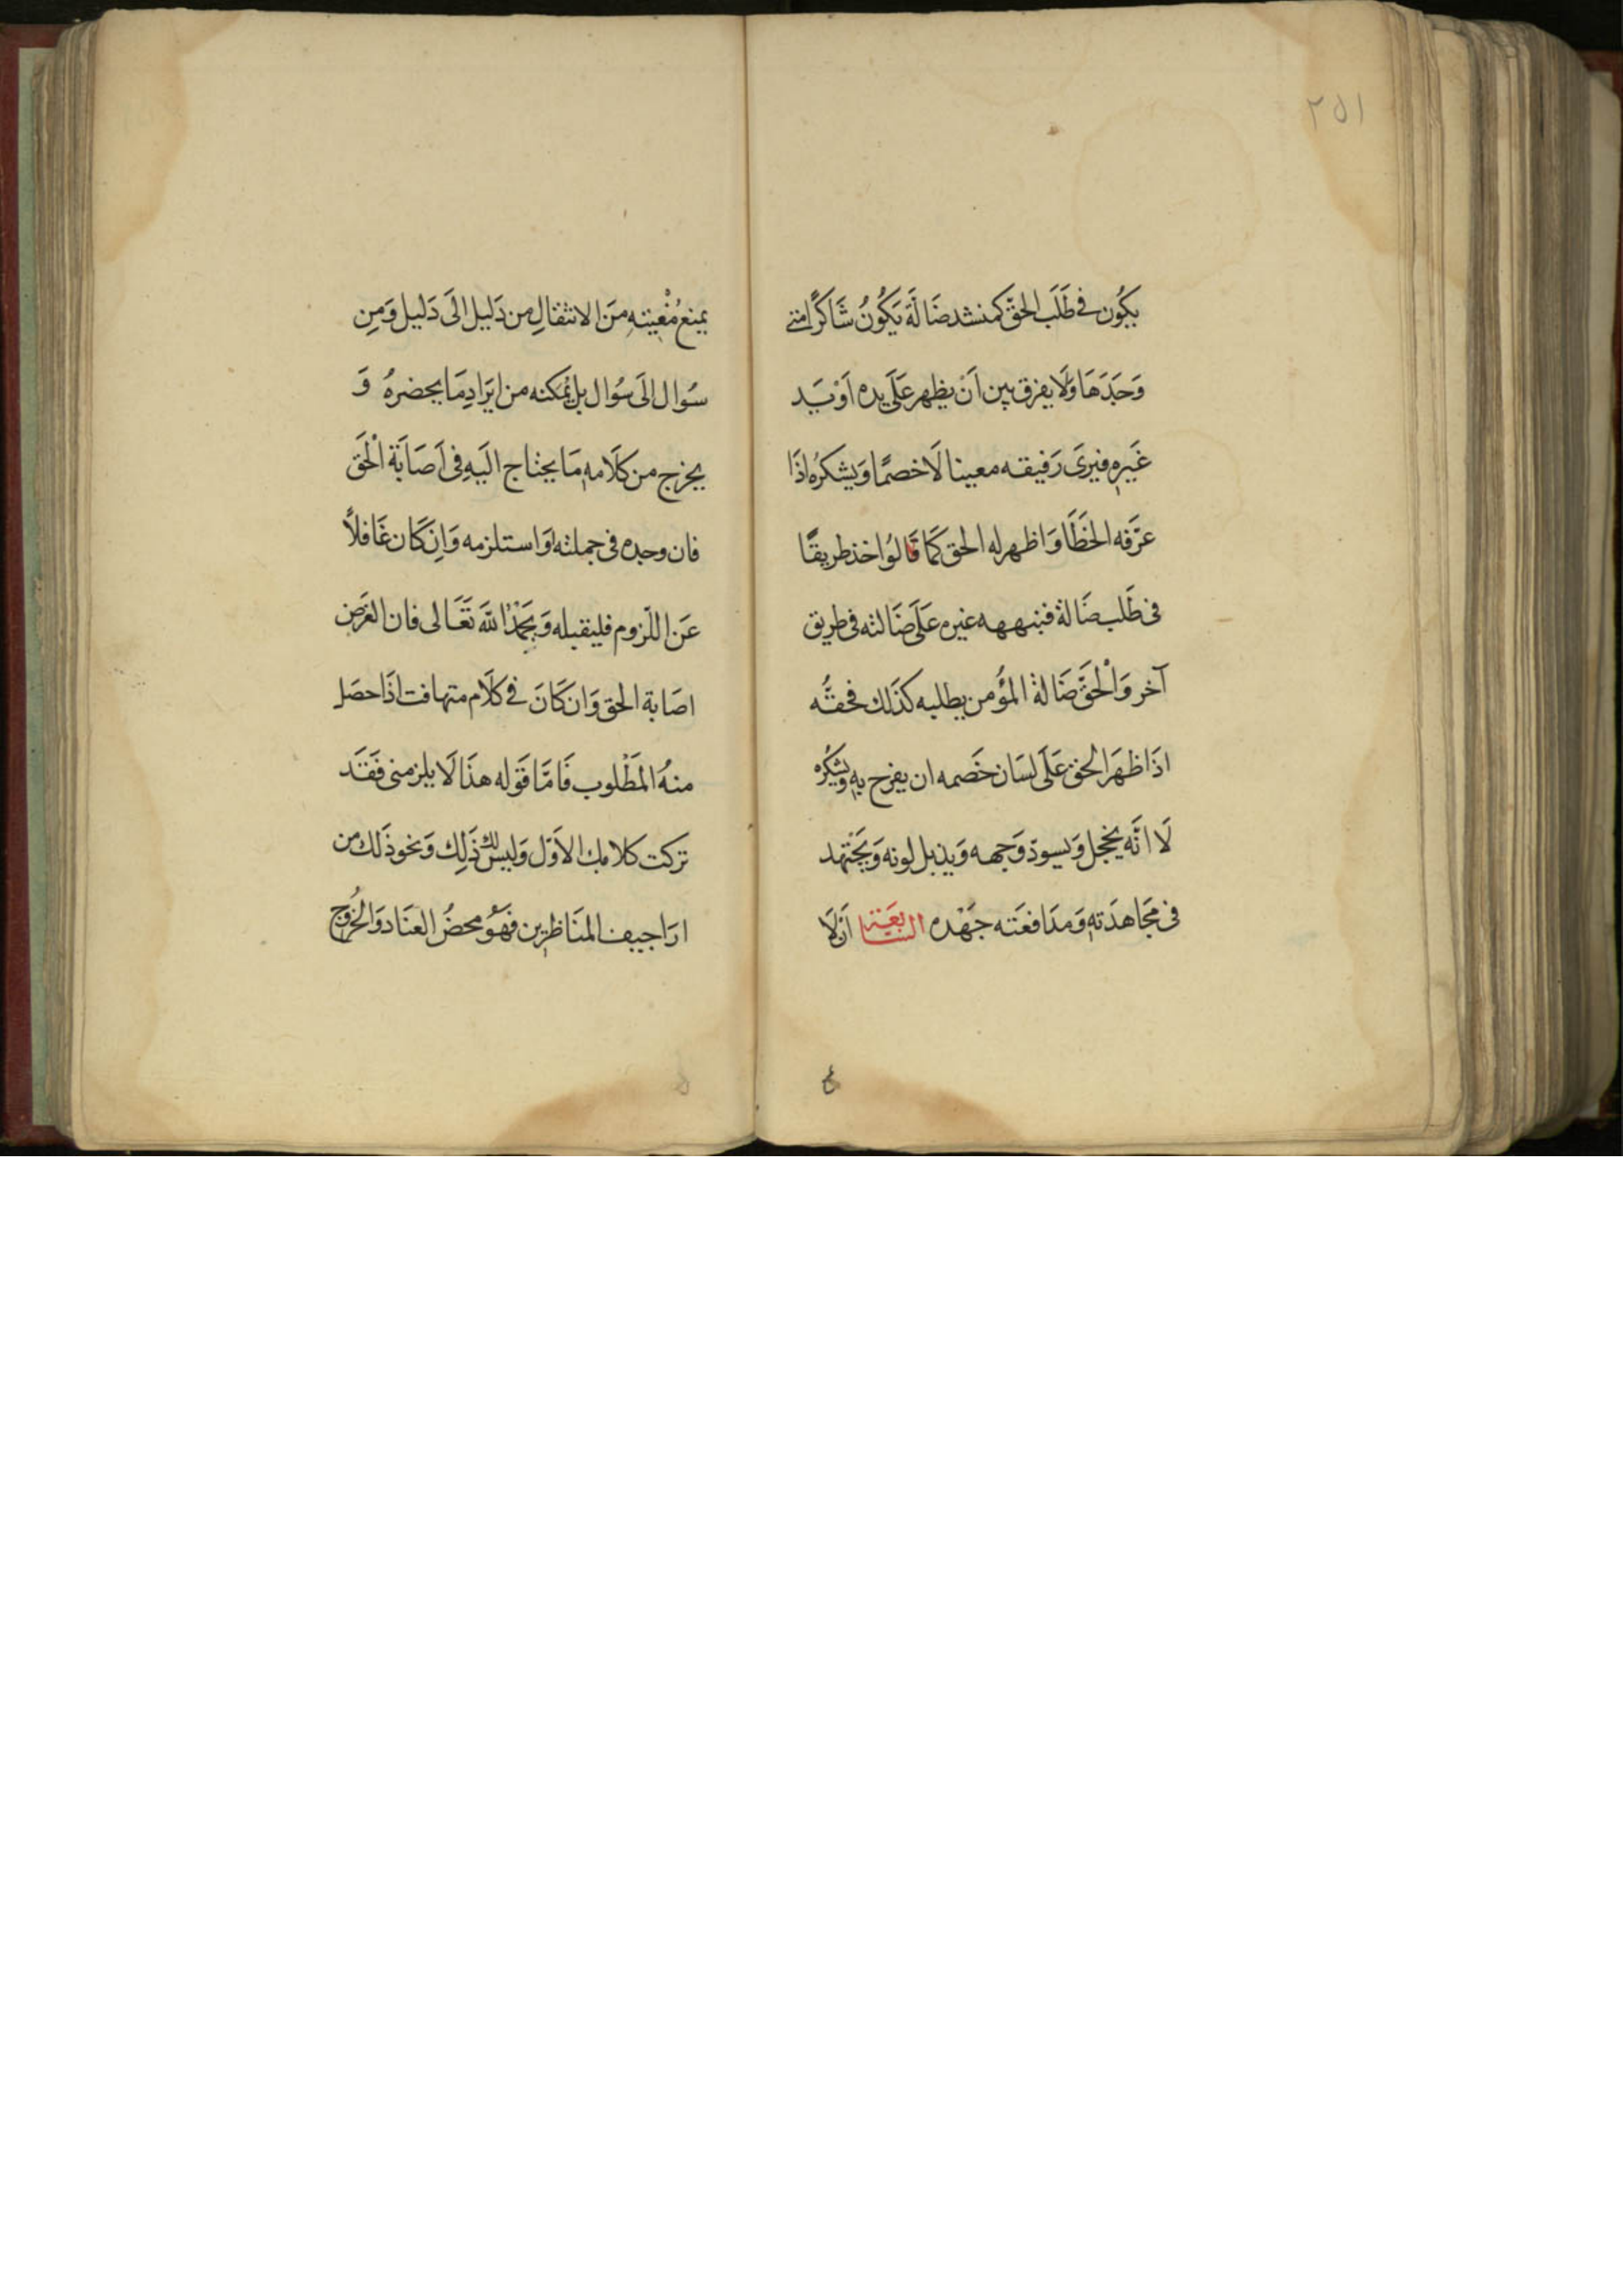 ٢٥١
يكُون في طَلَب الحقّ كمنشد ضَالَّة يَكُونُ شَاكرًا متى
وَجَدَهَا وَلَا يفرق بين اَنْ يظهر عَلَى يده اَوْ يَد
غَيره فيرىَ رَفيقه معينا لَا خصمًا وَيشكرُه اذَا
عرّفه الخَطَأ وَاظهر له الحق كَمَا قَالوُا خذ طريقًا
فى طَلب ضَالة فنبهه غيره عَلَى ضَالته فى طريق
آخر وَالْحَقّ ضَالة المؤُمن يطلبه كذَلك فحقّه
اذَا ظهَر الحق عَلَى لسَان خَصمه ان يفرح به ويشكره
لَا انَّه يخجل وَيسودّ وَجهه وَيذبل لونه وَيَجْتهد
فى مجَاهدَته وَمدَافعَته جَهْده السَّابعَة اَنْ لَا
٤
يمنع مُعْينه منَ الانتقالِ من دَليل الَى دَليل وَمِن
سُوال الَى سُوال بل يُمَكنه من ايَرَادِ مَا يحضرهُ وَ
يخرج من كلَامه مَا يحتاج اليَه فِى اَصَابَة الْحَق
فان وجده فى جملته اَوَ استلزمه وَاِن كَان غَافلاً
عَن اللّزوم فليقبله وَيَحْمدُ اللّهَ تَعَالى فان الغَرَض
اصَابة الحق وَان كَانَ فى كلَام متهافت اذَا حصَل
منهُ المَطْلوب فَامَّا قَوله هذَا لَا يلزمنى فَقَد
تركت كلامك الاَوّل وَليسَ لك ذَلِك وَنحو ذَلك من
ارَاجيف المنَاظرِين فهَوُ محضُ العنَاد وَالخرُوج